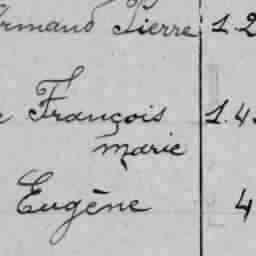 Armand Pierre 1.2
François 1.4
marie
Eugène 4